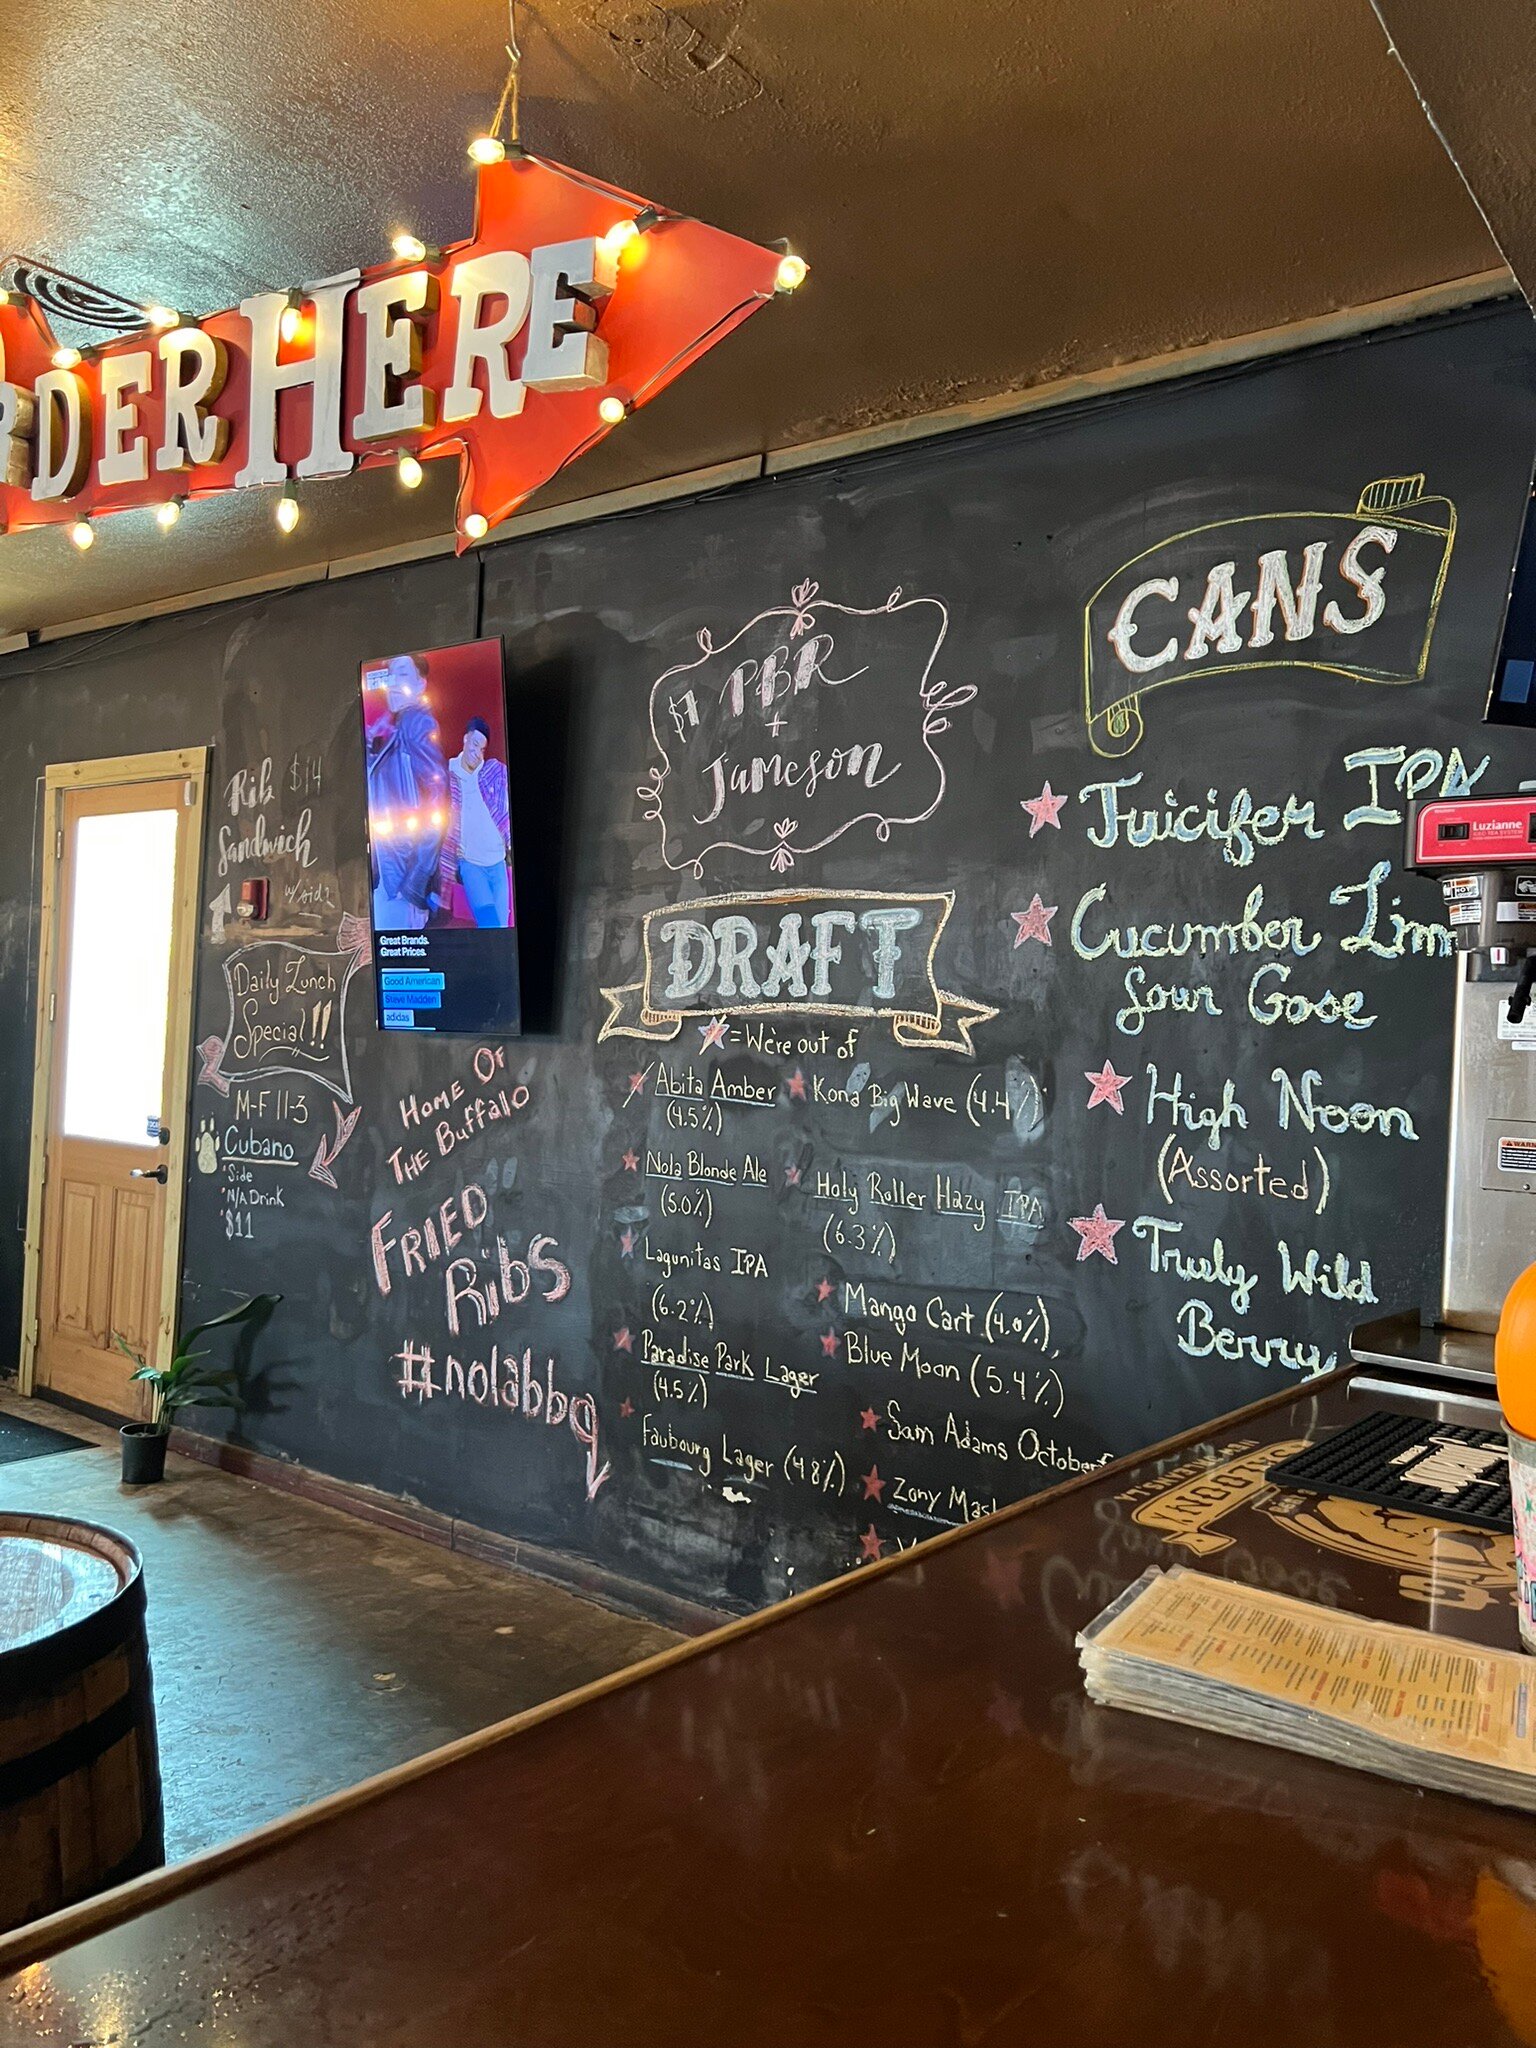 ORDER HERE
Rib $14
Sandwich
w/ side
Daily Lunch
Special!!
M-F 11-3
Cubano
Side
N/A Drink
$11
Great Brands.
Great Prices.
Good American
Steve Madden
adidas
HOME OF
THE BUFFALO
FRIED
RIBS
#nolabbq
$7 PBR
+
Jameson
DRAFT
= We're out of
Abita Amber
(4.5%)
Nola Blonde Ale
(5.0%)
Lagunitas IPA
(6.2%)
Paradise Park Lager
(4.5%)
Faubourg Lager (4.8%)
Kona Big Wave (4.4%)
Holy Roller Hazy IPA
(6.3%)
Mango Cart (4.0%)
Blue Moon (5.4%)
Sam Adams Octoberf
Zony Mash
CANS
Juicifer IPA
Cucumber Lime
Sour Gose
High Noon
(Assorted)
Truly Wild
Berry
Luzianne